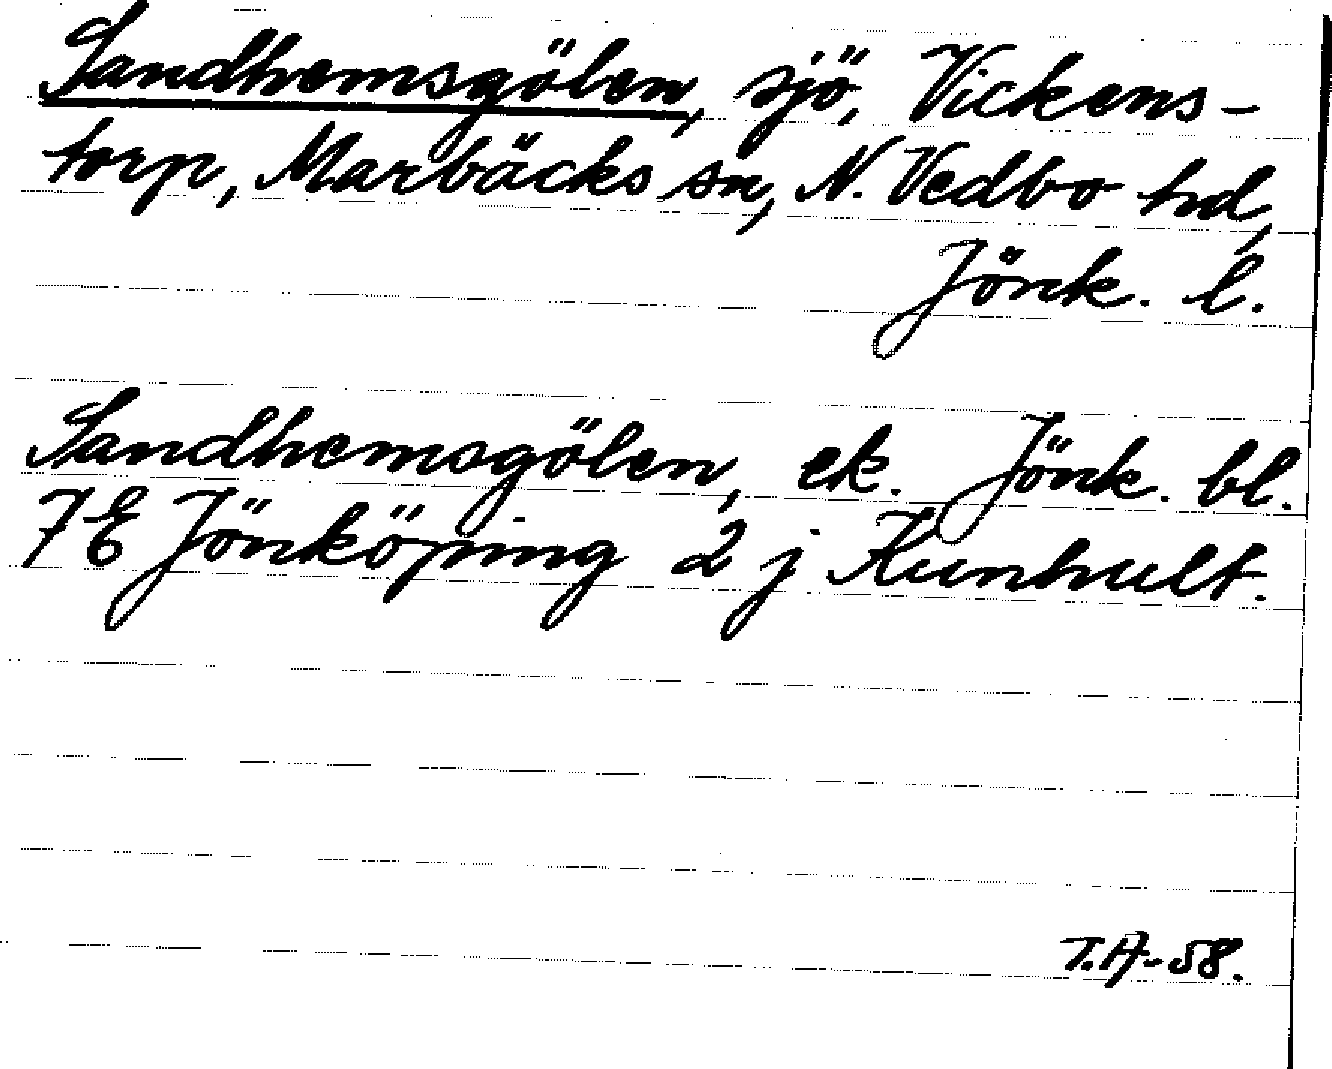 Sandhemsgölen, sjö, Vickens-
torp, Marbäcks sn, N. Vedbo hd,
Jönk. l.
Sandhemsgölen, ek. Jönk. bl.
7E Jönköping 2 j Kunhult.
T.A-58.